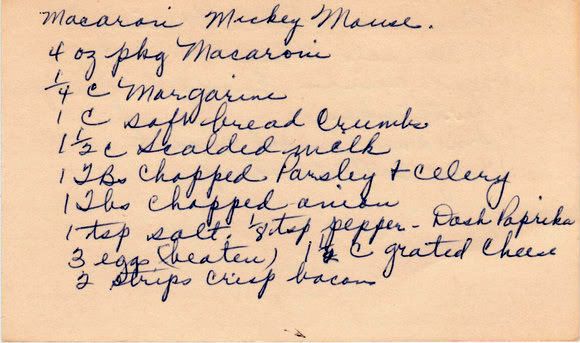 Macaroni Mickey Mouse.
4 oz pkg Macaroni
1/4 c Margarine
1 C soft bread Crumbs
1 1/2 c Scalded milk
1 TBs Chopped Parsley + Celery
1 Tbs chopped onion
1 tsp salt. 1/8 tsp pepper - Dash Paprika
3 eggs (beaten) 1 1/2 C grated Cheese
2 strips crisp bacon